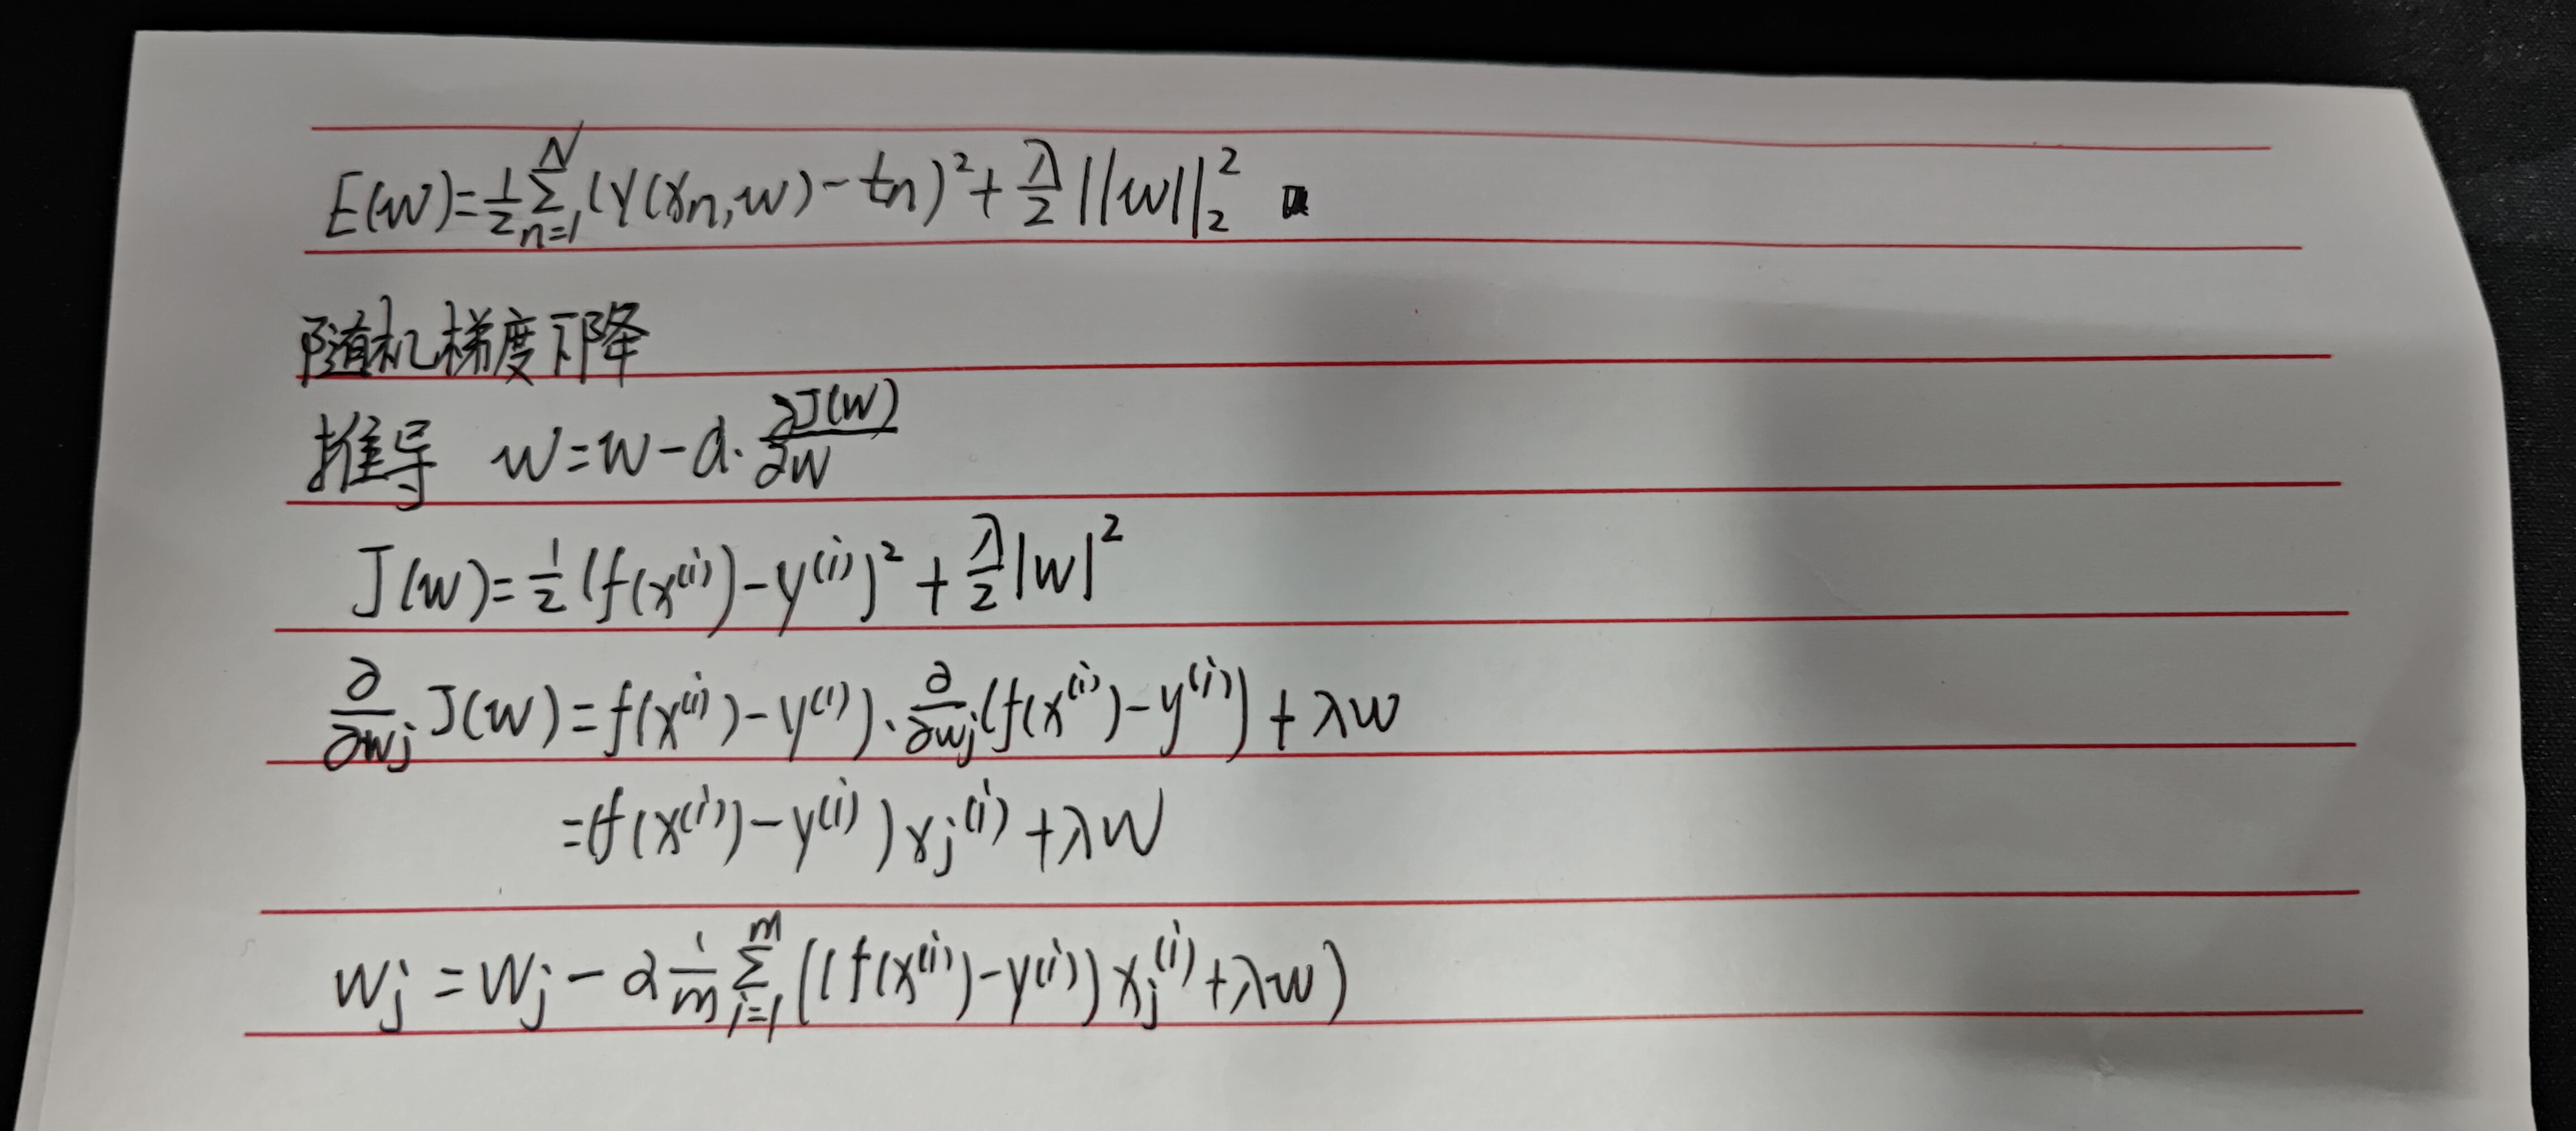 E(w)=½∑ₙ₌₁ᴺ(y(xₙ,w)-tₙ)²+λ/2||w||₂²
随机梯度下降
推导 w=w-α·∂J(w)/∂w
J(w)=½(f(x⁽ⁱ⁾)-y⁽ⁱ⁾)²+λ/2|w|²
∂/∂wⱼ J(w)=f(x⁽ⁱ⁾)-y⁽ⁱ⁾)·∂/∂wⱼ(f(x⁽ⁱ⁾)-y⁽ⁱ⁾)+λw
=(f(x⁽ⁱ⁾)-y⁽ⁱ⁾)xⱼ⁽ⁱ⁾+λw
wⱼ=wⱼ-α 1/m ∑ᵢ₌₁ᵐ((f(x⁽ⁱ⁾)-y⁽ⁱ⁾)xⱼ⁽ⁱ⁾+λw)